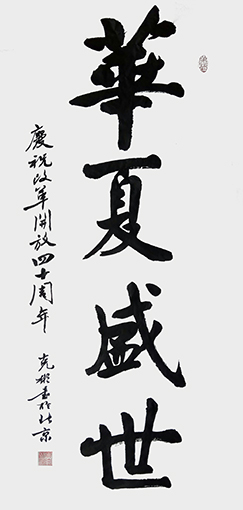 華夏盛世
慶祝改革開放四十周年
克彬書於北京